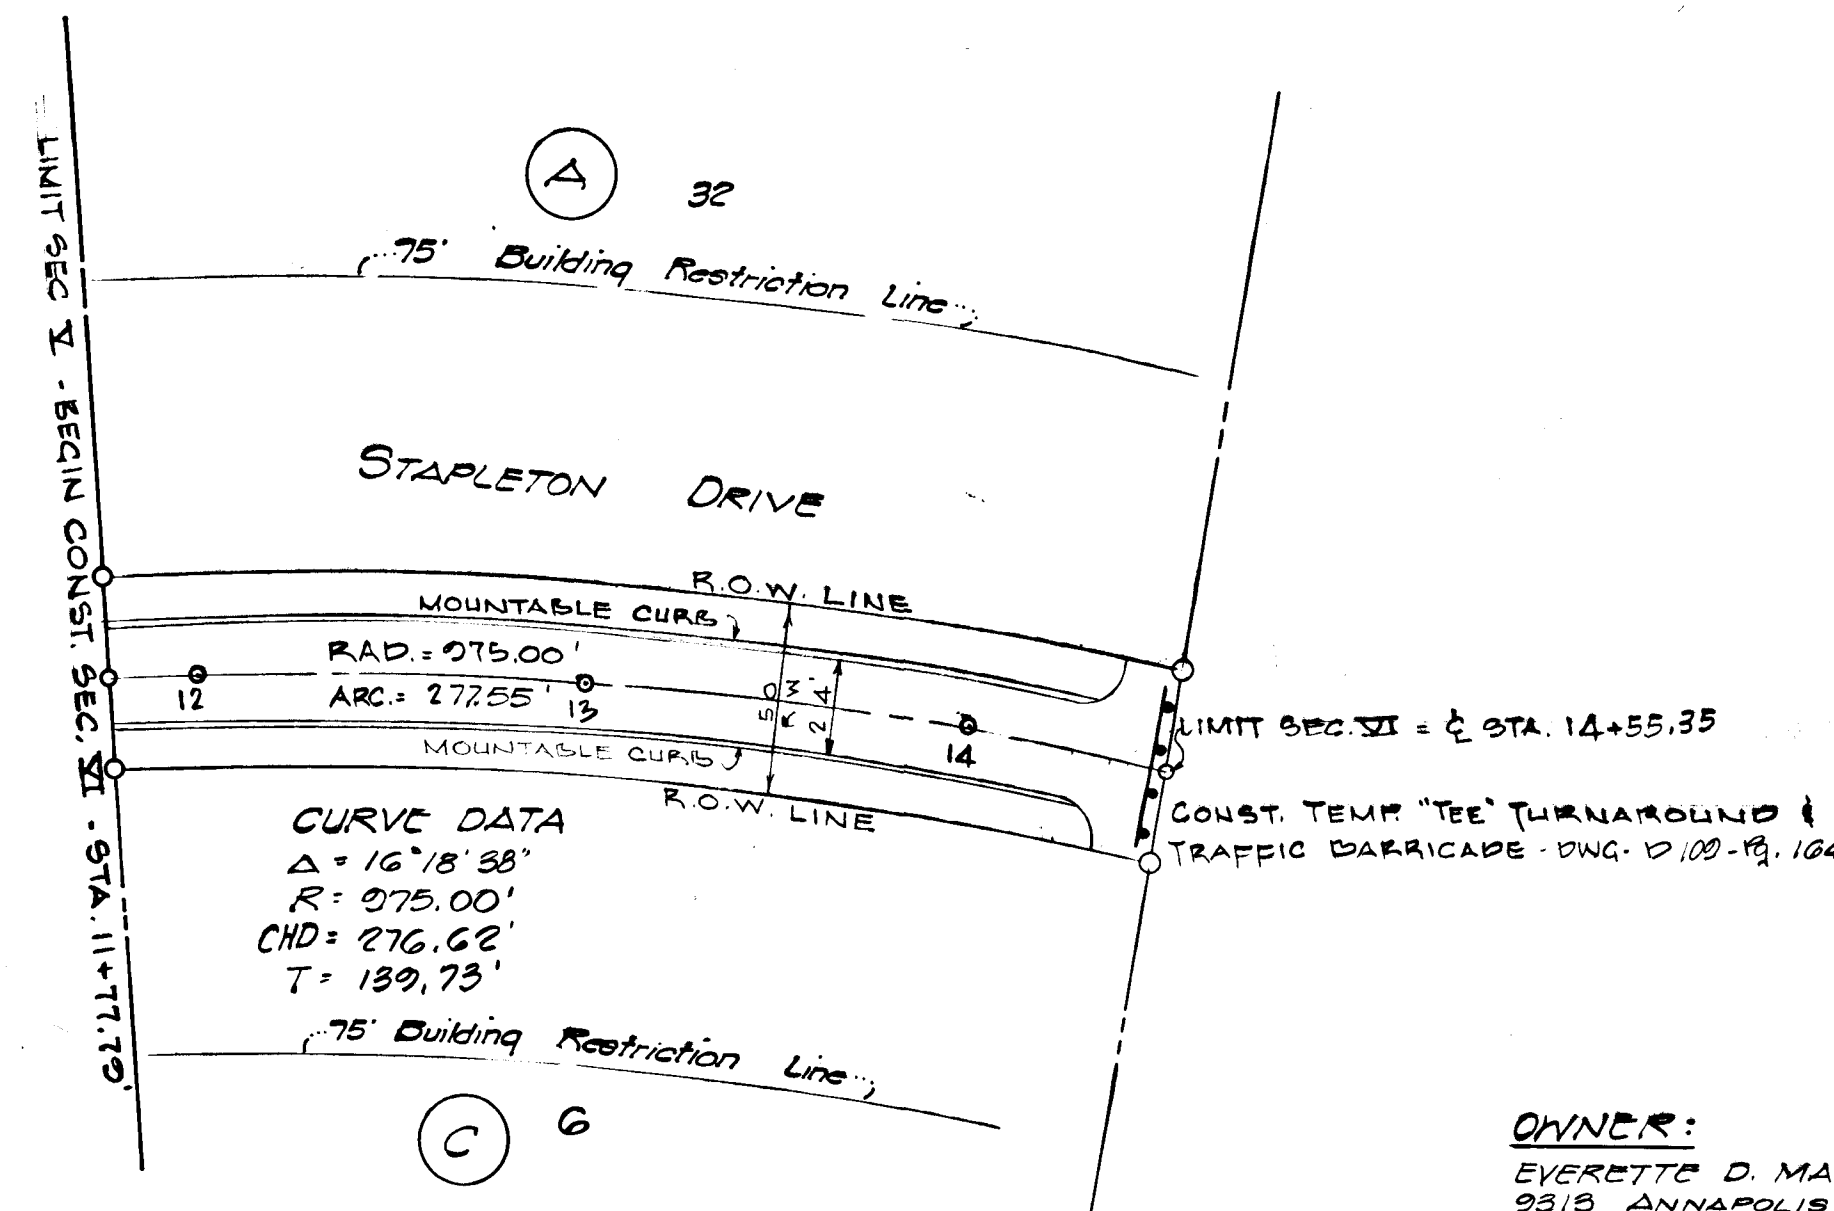 LIMIT SEC V - BEGIN CONST. SEC. VI - STA. 11+77.79'
A
32
75' Building Restriction Line
STAPLETON DRIVE
R.O.W. LINE
MOUNTABLE CURB
RAD. = 975.00'
12
ARC. = 277.55'
13
50 R W
24'
14
MOUNTABLE CURB
R.O.W. LINE
LIMIT SEC. VI = ℄ STA. 14+55.35
CONST. TEMP. "TEE" TURNAROUND &
TRAFFIC BARRICADE - DWG. D 109 - Pg. 164
CURVE DATA
Δ = 16°18'38"
R = 975.00'
CHD = 276.62'
T = 139.73'
75' Building Restriction Line
C
6
OWNER:
EVERETTE D. MA
9313 ANNAPOLIS